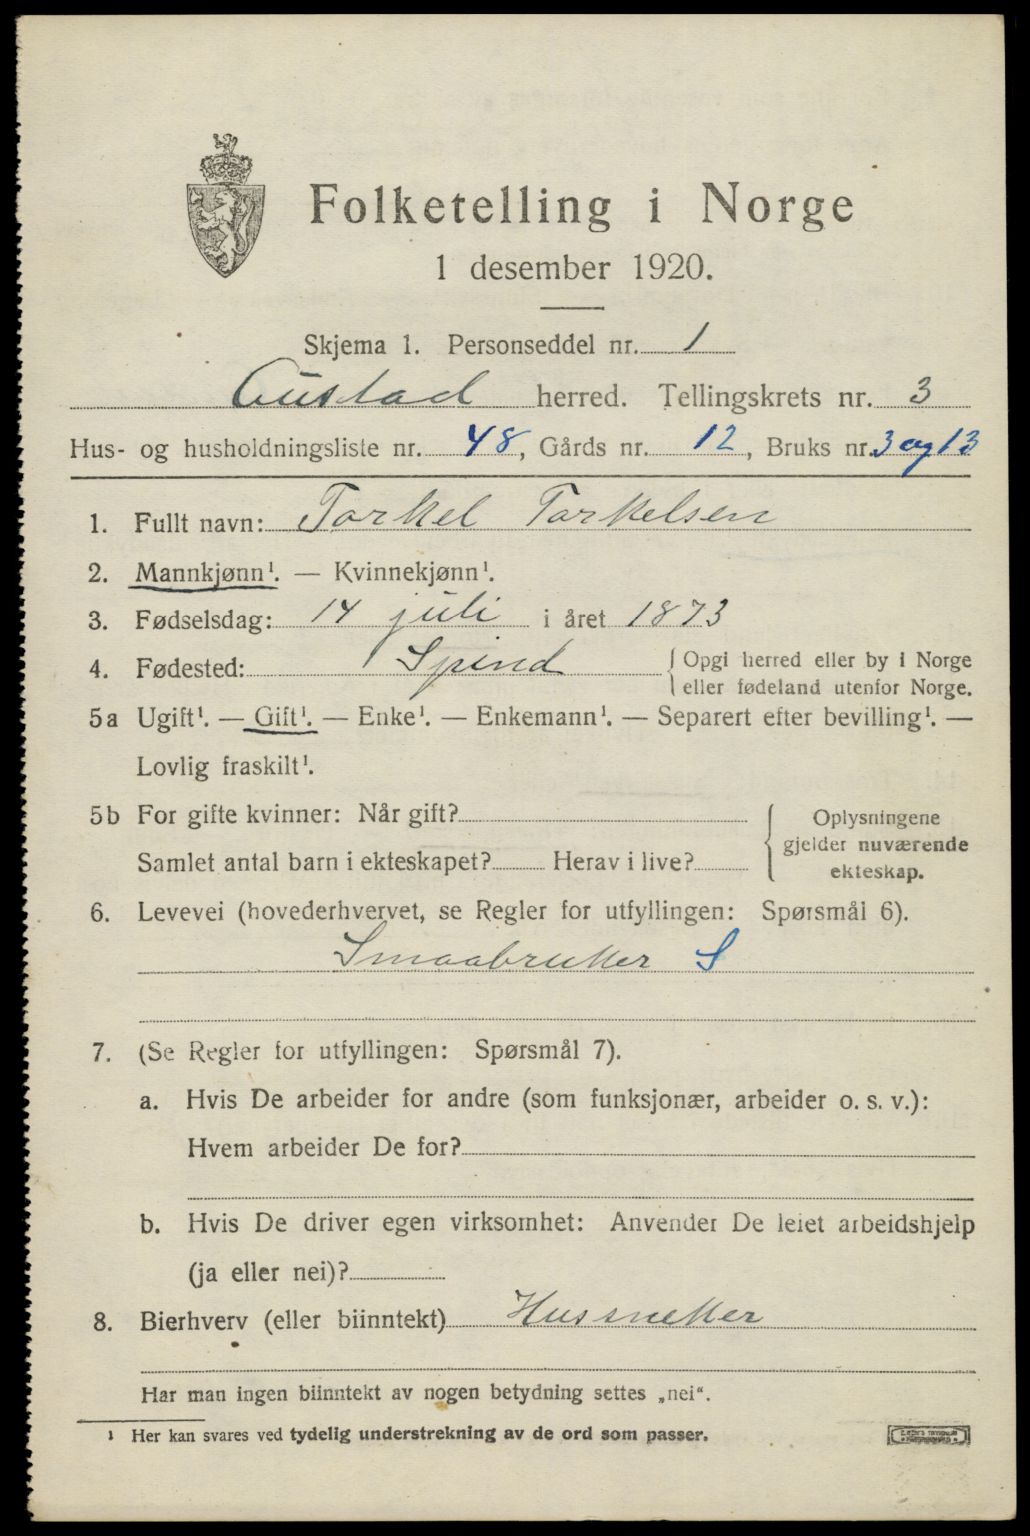 Folketelling i Norge
1 desember 1920.
Skjema 1. Personseddel nr. 1
Austad herred. Tellingskrets nr. 3
Hus- og husholdningsliste nr. 48, Gårds nr. 12, Bruks nr. 3 og 13
1. Fullt navn: Torkel Torkelsen
2. Mannkjønn¹. — Kvinnekjønn¹.
3. Fødselsdag: 14 juli i året 1873
4. Fødested: Spind { Opgi herred eller by i Norge
eller fødeland utenfor Norge.
5a Ugift¹. — Gift¹. — Enke¹. — Enkemann¹. — Separert efter bevilling¹. —
Lovlig fraskilt¹.
5b For gifte kvinner: Når gift?
Samlet antal barn i ekteskapet? Herav i live?
Oplysningene
gjelder nuværende
ekteskap.
6. Levevei (hovederhvervet, se Regler for utfyllingen: Spørsmål 6).
Smaabruker S
7. (Se Regler for utfyllingen: Spørsmål 7).
a. Hvis De arbeider for andre (som funksjonær, arbeider o. s. v.):
Hvem arbeider De for?
b. Hvis De driver egen virksomhet: Anvender De leiet arbeidshjelp
(ja eller nei)?
8. Bierhverv (eller biinntekt) Hussnekker
Har man ingen biinntekt av nogen betydning settes „nei“.
¹ Her kan svares ved tydelig understrekning av de ord som passer.